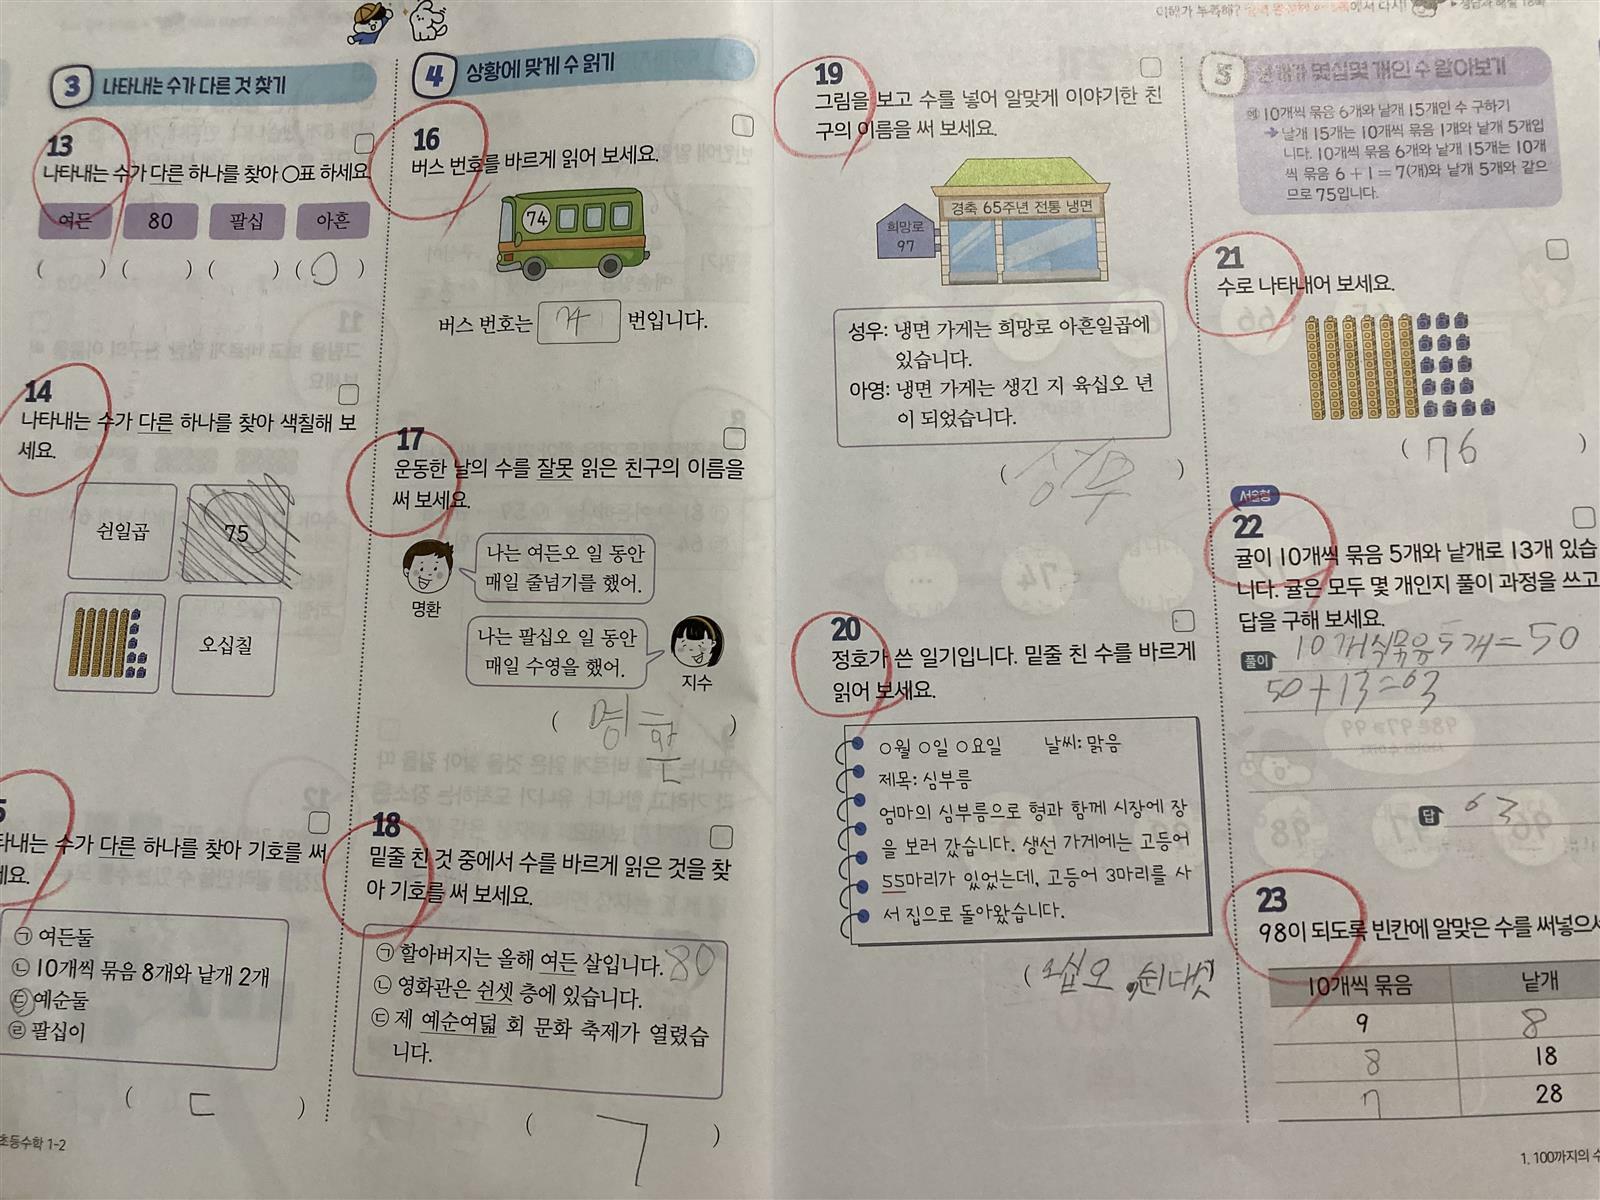 3 나타내는 수가 다른 것 찾기
13
나타내는 수가 다른 하나를 찾아 ○표 하세요.
여든 80 팔십 아흔
( ) ( ) ( ) (○)
14
나타내는 수가 다른 하나를 찾아 색칠해 보
세요.
쉰일곱 75
오십칠
5
타내는 수가 다른 하나를 찾아 기호를 써
세요.
㉠ 여든둘
㉡ 10개씩 묶음 8개와 낱개 2개
㉢ 예순둘
㉣ 팔십이
( ㄷ )
초등수학 1-2
4 상황에 맞게 수 읽기
16
버스 번호를 바르게 읽어 보세요.
74
버스 번호는 74 번입니다.
17
운동한 날의 수를 잘못 읽은 친구의 이름을
써 보세요.
나는 여든오 일 동안
매일 줄넘기를 했어.
명환
나는 팔십오 일 동안
매일 수영을 했어.
지수
( 명환 )
18
밑줄 친 것 중에서 수를 바르게 읽은 것을 찾
아 기호를 써 보세요.
㉠ 할아버지는 올해 여든 살입니다. 80
㉡ 영화관은 쉰셋 층에 있습니다.
㉢ 제 예순여덟 회 문화 축제가 열렸습
니다.
( ㄱ )
19
그림을 보고 수를 넣어 알맞게 이야기한 친
구의 이름을 써 보세요.
경축 65주년 전통 냉면
희망로
97
성우: 냉면 가게는 희망로 아흔일곱에
있습니다.
아영: 냉면 가게는 생긴 지 육십오 년
이 되었습니다.
( 성우 )
20
정호가 쓴 일기입니다. 밑줄 친 수를 바르게
읽어 보세요.
○월 ○일 ○요일 날씨: 맑음
제목: 심부름
엄마의 심부름으로 형과 함께 시장에 장
을 보러 갔습니다. 생선 가게에는 고등어
55마리가 있었는데, 고등어 3마리를 사
서 집으로 돌아왔습니다.
( 오십오, 쉰다섯
정답과 해설 18쪽
5 낱개가 몇십몇 개인 수 알아보기
예 10개씩 묶음 6개와 낱개 15개인 수 구하기
➔ 낱개 15개는 10개씩 묶음 1개와 낱개 5개입
니다. 10개씩 묶음 6개와 낱개 15개는 10개
씩 묶음 6+1=7(개)와 낱개 5개와 같으
므로 75입니다.
21
수로 나타내어 보세요.
( 76 )
서술형
22
귤이 10개씩 묶음 5개와 낱개로 13개 있습
니다. 귤은 모두 몇 개인지 풀이 과정을 쓰고
답을 구해 보세요.
풀이 10개씩묶음5개=50
50+13=63
답 63
23
98이 되도록 빈칸에 알맞은 수를 써넣으세
10개씩 묶음 낱개
9 8
8 18
7 28
1. 100까지의 수